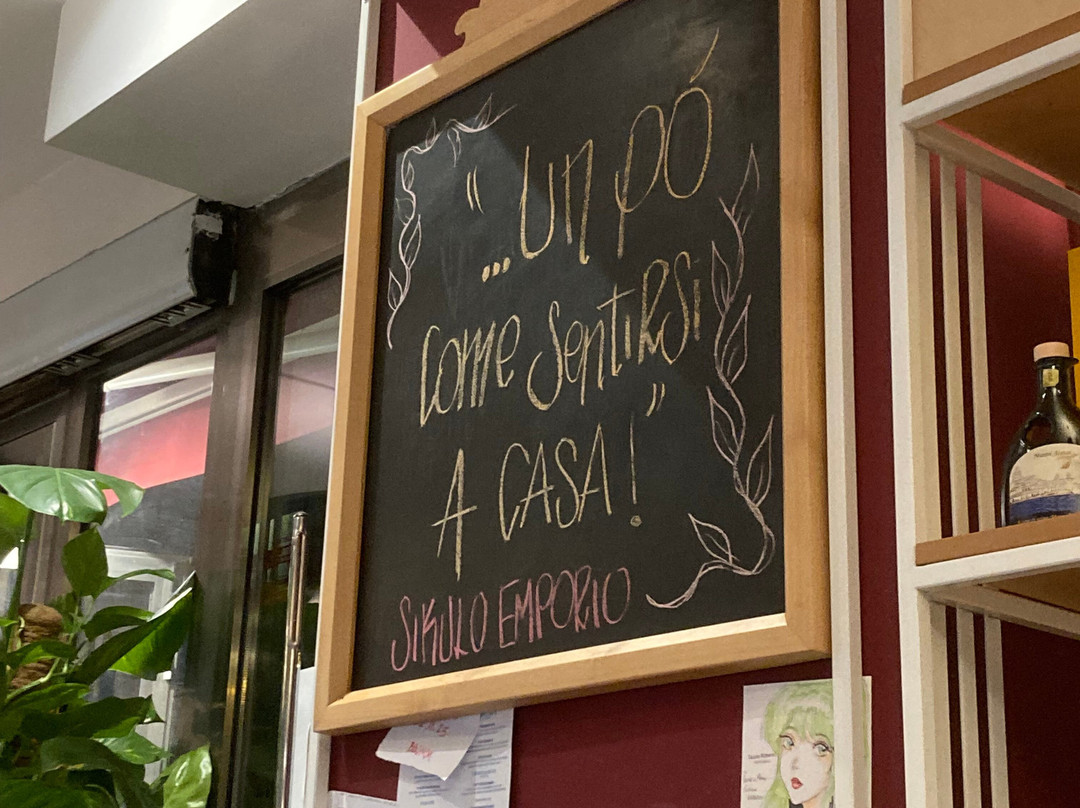 "...UN PÓ
COME SENTIRSI
A CASA!"
SIKULO EMPORIO